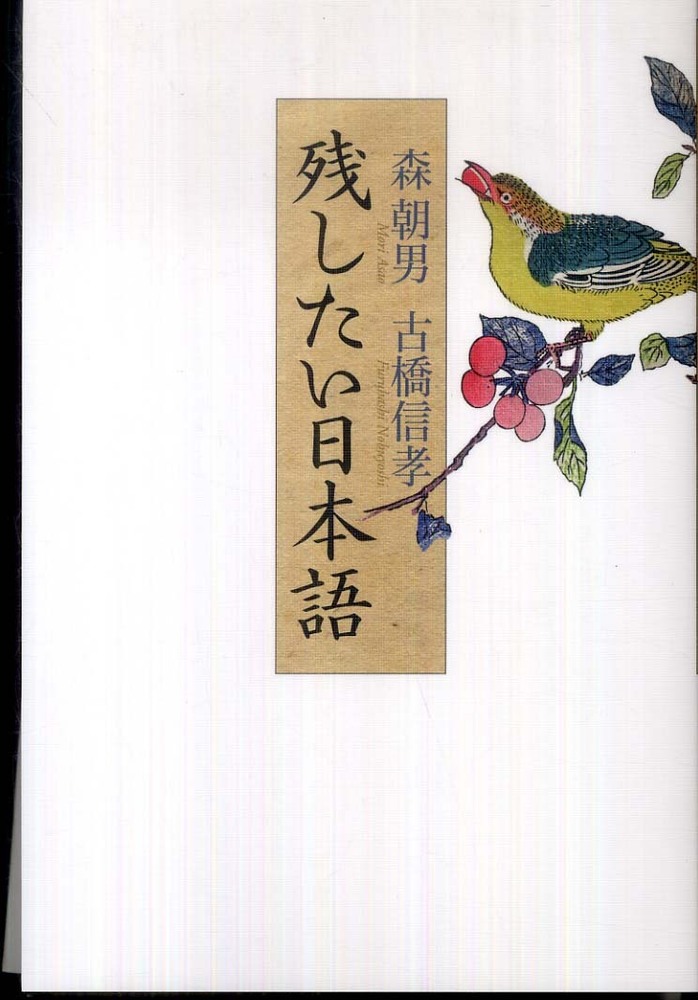 森 朝男 古橋信孝
Mori Asao Furuhashi Nobuyoshi
残したい日本語